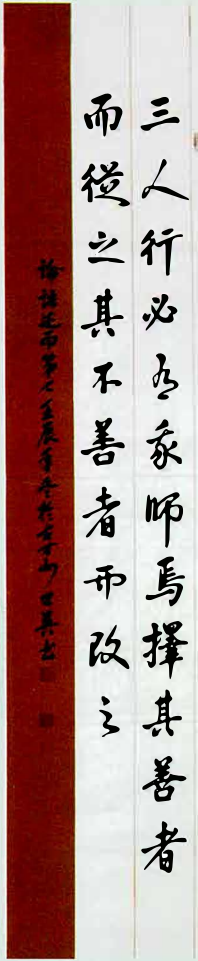 三人行必有我師焉擇其善者
而從之其不善者而改之
論語述而第七壬辰年冬於